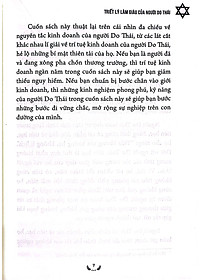 TRIẾT LÝ LÀM GIÀU CỦA NGƯỜI DO THÁI
Cuốn sách này thuật lại trên cái nhìn đa chiều về
nguyên tắc kinh doanh của người Do Thái, từ các lát cắt
khác nhau lí giải về trí tuệ kinh doanh của người Do Thái,
hé lộ những bí mật thiên tài của họ. Nếu bạn là người đã
và đang xông pha chốn thương trường, thì trí tuệ kinh
doanh ngàn năm trong cuốn sách này sẽ giúp bạn giảm
thiểu nguy hiểm. Nếu bạn chuẩn bị bước chân vào giới
kinh doanh, thì những kinh nghiệm phong phú, kỹ năng
của người Do Thái trong cuốn sách này sẽ giúp bạn bước
những bước đi vững chắc, mở rộng sự nghiệp trên con
đường của mình.
7